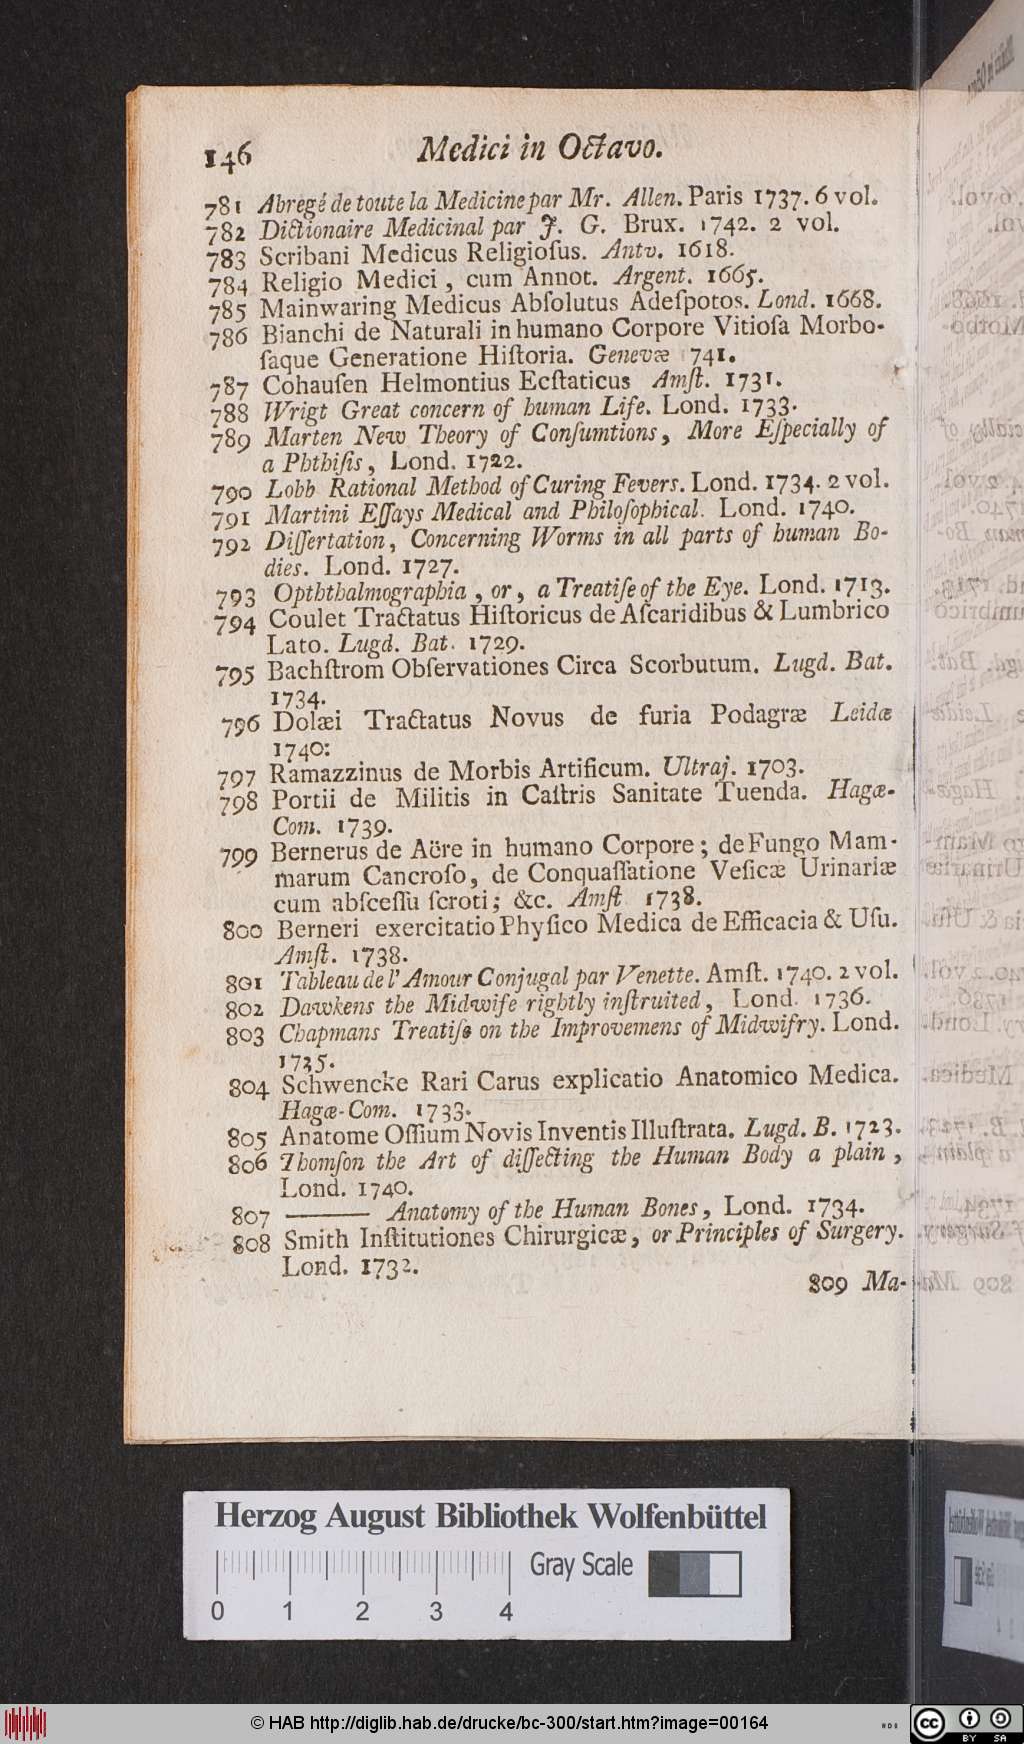 146 Medici in Octavo.
781 Abregé de toute la Medicine par Mr. Allen. Paris 1737. 6 vol.
782 Dictionaire Medicinal par J. G. Brux. 1742. 2 vol.
783 Scribani Medicus Religioſus. Antv. 1618.
784 Religio Medici, cum Annot. Argent. 1665.
785 Mainwaring Medicus Abſolutus Adeſpotos. Lond. 1668.
786 Bianchi de Naturali in humano Corpore Vitioſa Morbo-
ſaque Generatione Hiſtoria. Genevæ 1741.
787 Cohauſen Helmontius Ecſtaticus Amſt. 1731.
788 Wrigt Great concern of human Life. Lond. 1733.
789 Marten New Theory of Conſumtions, More Eſpecially of
a Phthiſis, Lond. 1722.
790 Lobb Rational Method of Curing Fevers. Lond. 1734. 2 vol.
791 Martini Eſſays Medical and Philoſophical. Lond. 1740.
792 Diſſertation, Concerning Worms in all parts of human Bo-
dies. Lond. 1727.
793 Opththalmographia, or, a Treatiſe of the Eye. Lond. 1713.
794 Coulet Tractatus Hiſtoricus de Aſcaridibus & Lumbrico
Lato. Lugd. Bat. 1729.
795 Bachſtrom Obſervationes Circa Scorbutum. Lugd. Bat.
1734.
796 Dolæi Tractatus Novus de furia Podagræ Leidæ
1740:
797 Ramazzinus de Morbis Artificum. Ultraj. 1703.
798 Portii de Militis in Caſtris Sanitate Tuenda. Hagæ-
Com. 1739.
799 Bernerus de Aëre in humano Corpore; de Fungo Mam-
marum Cancroſo, de Conquaſſatione Veſicæ Urinariæ
cum abſceſſu ſcroti; &c. Amſt 1738.
800 Berneri exercitatio Phyſico Medica de Efficacia & Uſu.
Amſt. 1738.
801 Tableau de l'Amour Conjugal par Venette. Amſt. 1740. 2 vol.
802 Dawkens the Midwife rightly inſtruited, Lond. 1736.
803 Chapmans Treatiſe on the Improvemens of Midwifry. Lond.
1735.
804 Schwencke Rari Carus explicatio Anatomico Medica.
Hagæ-Com. 1733.
805 Anatome Oſſium Novis Inventis Illuſtrata. Lugd. B. 1723.
806 Thomſon the Art of diſſecting the Human Body a plain,
Lond. 1740.
807 ——— Anatomy of the Human Bones, Lond. 1734.
808 Smith Inſtitutiones Chirurgicæ, or Principles of Surgery.
Lond. 1732.
809 Ma-
Herzog August Bibliothek Wolfenbüttel
Gray Scale
0 1 2 3 4
© HAB http://diglib.hab.de/drucke/bc-300/start.htm?image=00164
cc BY SA